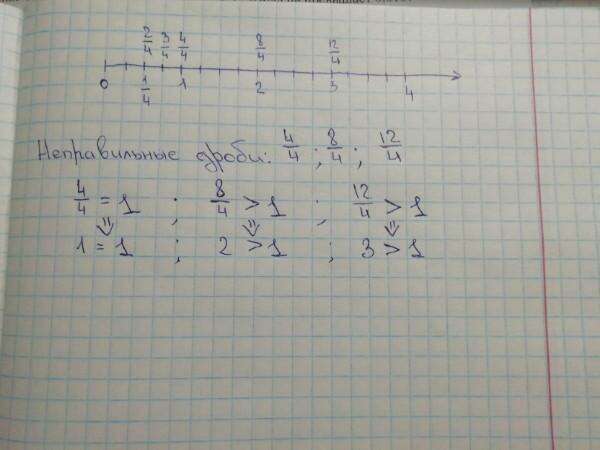 2/4 3/4 4/4 8/4 12/4
0 1/4 1 2 3 4
Неправильные дроби: 4/4 ; 8/4 ; 12/4
4/4 = 1 ; 8/4 > 1 ; 12/4 > 1
⇓ ⇓ ⇓
1 = 1 ; 2 > 1 ; 3 > 1